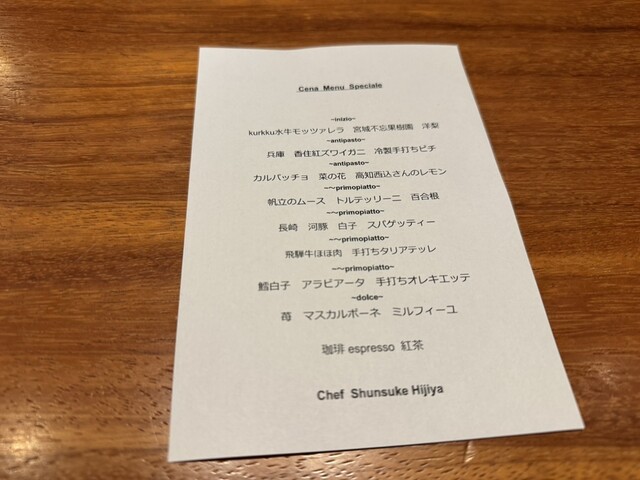 Cena Menu Speciale
~inizio~
kurkku水牛モッツァレラ 宮城不忘果樹園 洋梨
~antipasto~
兵庫 香住紅ズワイガニ 冷製手打ちピチ
~antipasto~
カルパッチョ 菜の花 高知西込さんのレモン
~~primopiatto~
帆立のムース トルテッリーニ 百合根
~~primopiatto~
長崎 河豚 白子 スパゲッティー
~~primopiatto~
飛騨牛ほほ肉 手打ちタリアテッレ
~~primopiatto~
鱈白子 アラビアータ 手打ちオレキエッテ
~dolce~
苺 マスカルポーネ ミルフィーユ
珈琲 espresso 紅茶
Chef Shunsuke Hijiya